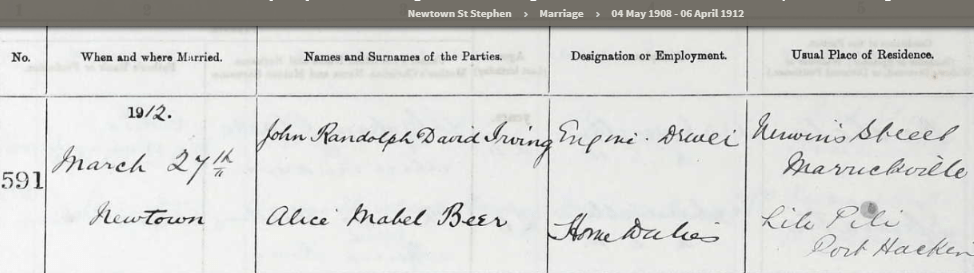 Newtown St Stephen › Marriage › 04 May 1908 - 06 April 1912
No. When and where Married. Names and Surnames of the Parties. Designation or Employment. Usual Place of Residence.
1912.
John Randolph David Irving Engine Driver Street
March 27th Marrickville
591
Newtown Alice Mabel Beer Home Duties Lili Pili
Port Hacken